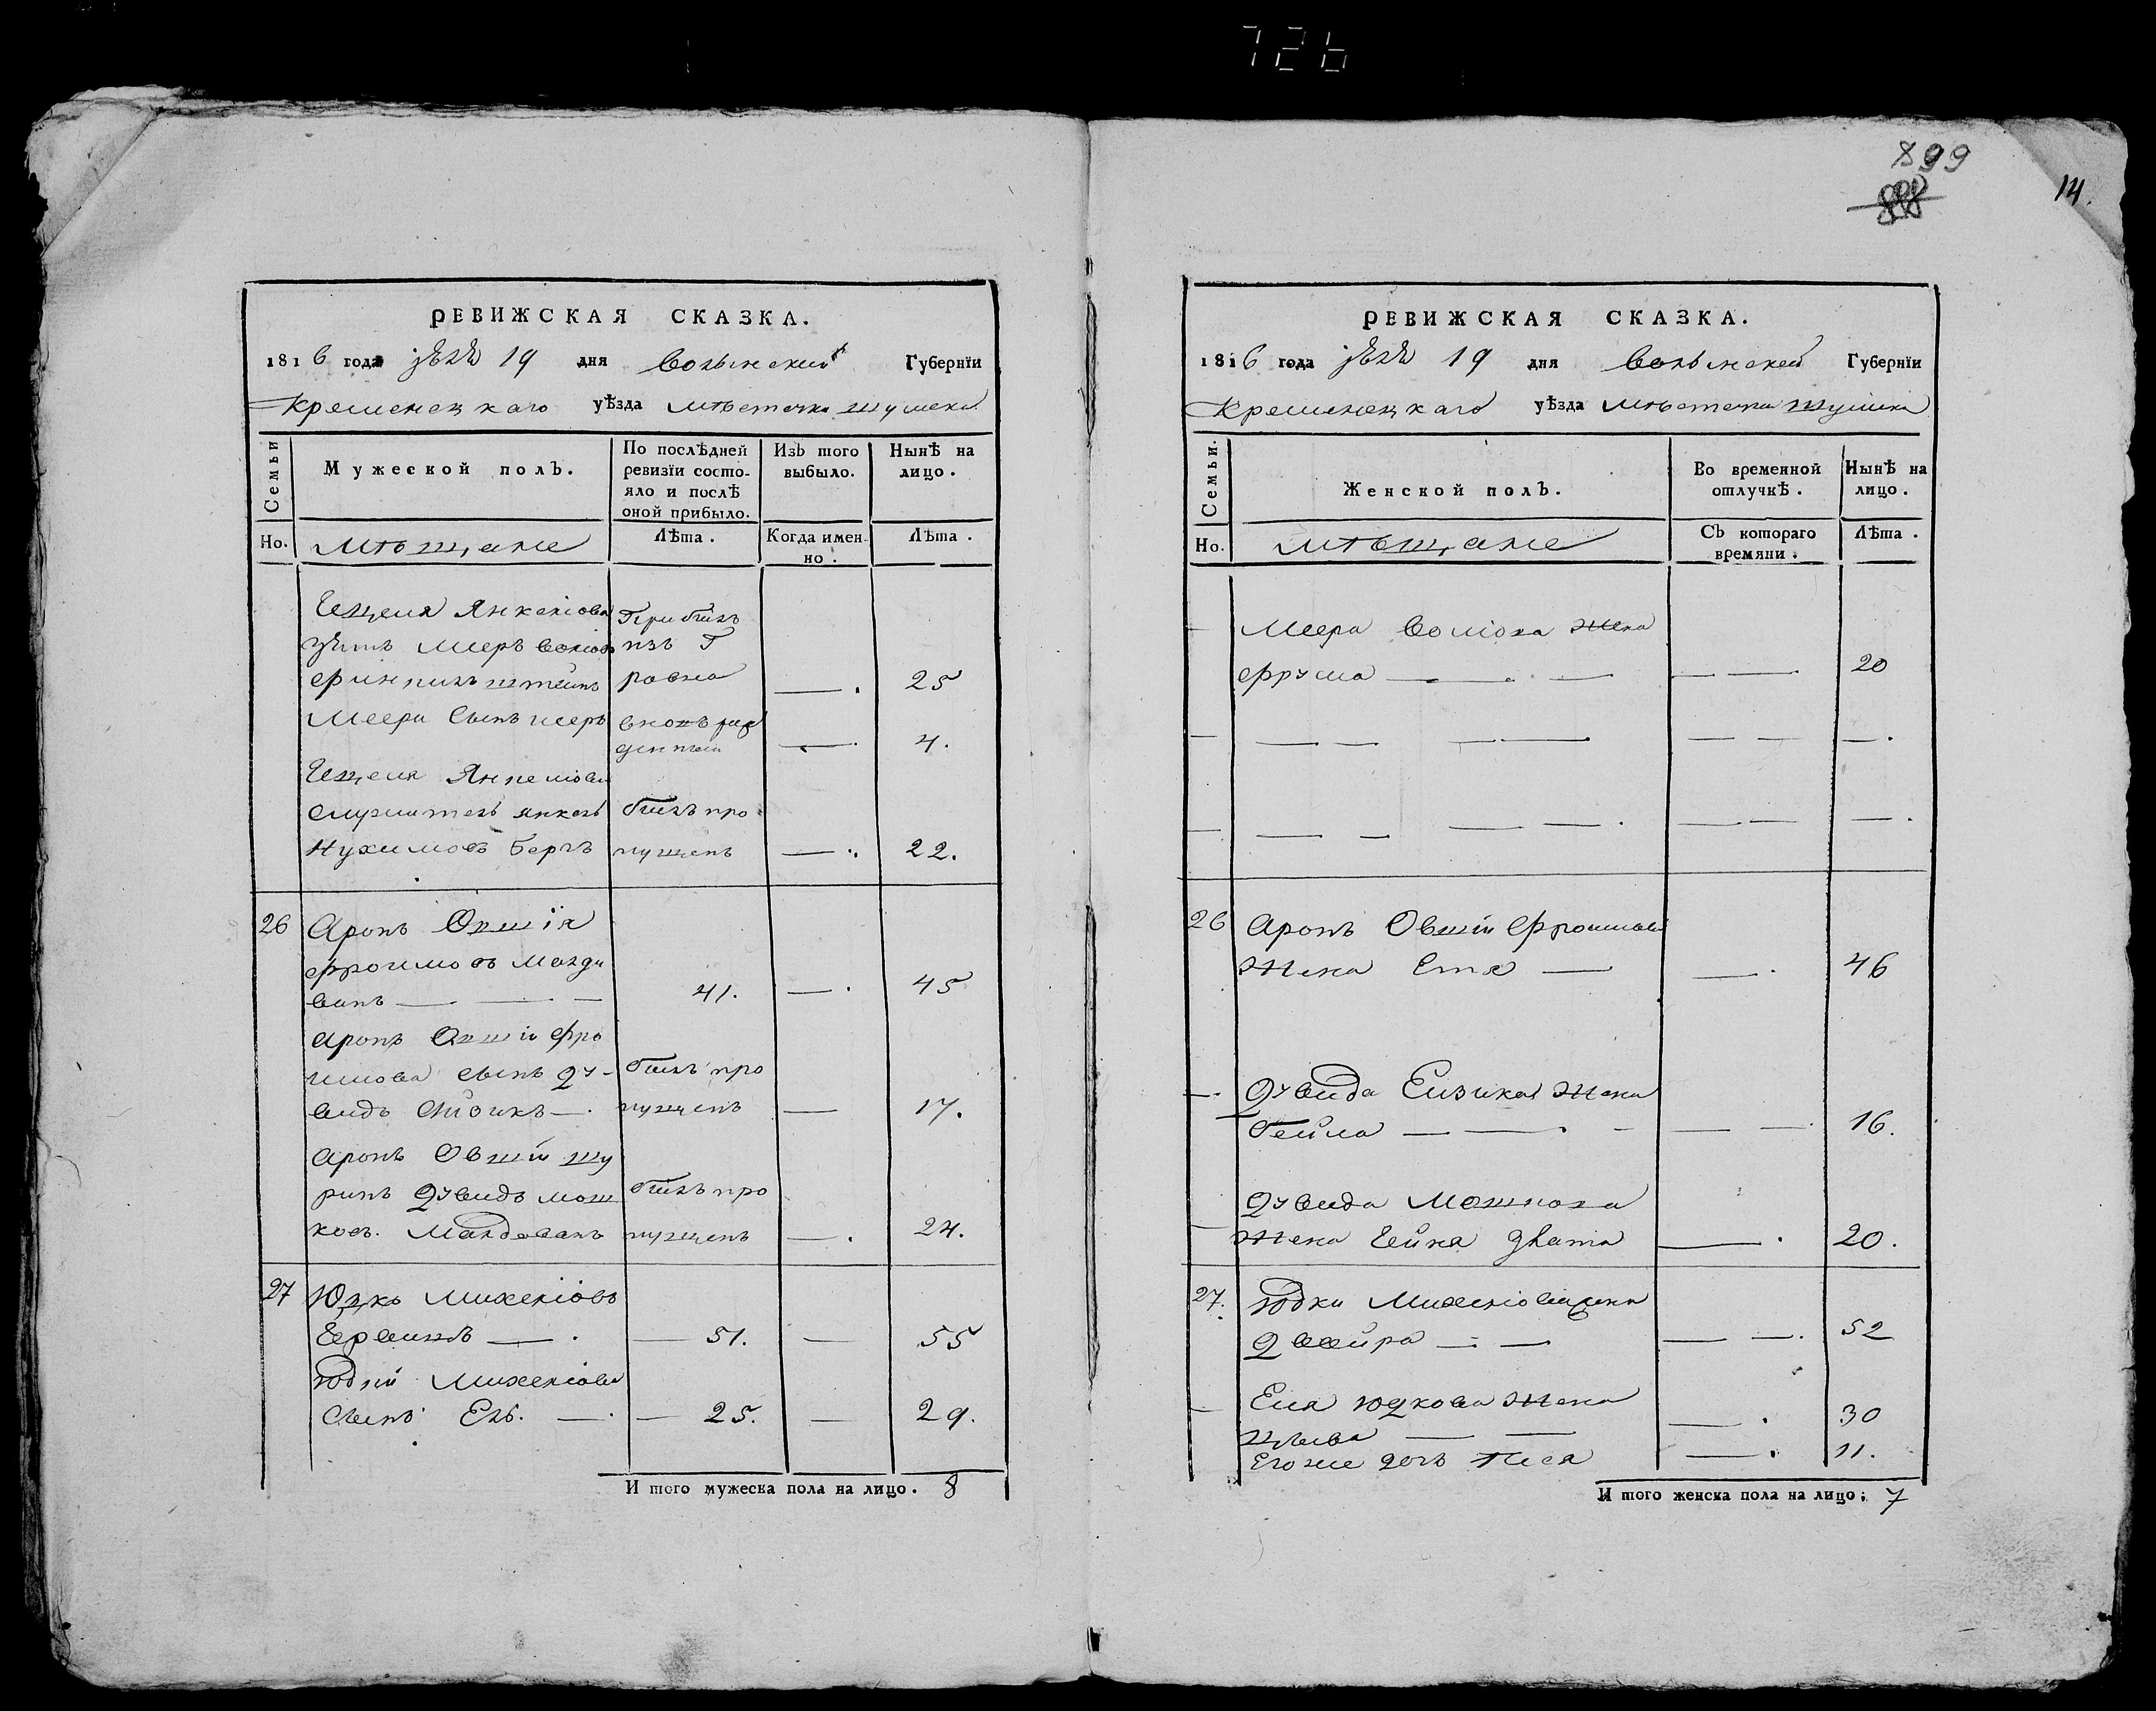 726
899
14.
РЕВИЖСКАЯ СКАЗКА.
1816 года 19 дня Волынской Губернїи
Кременецкаго уѣзда мѣстечка Шумска
Семьи
Мужеской полъ.
По послѣдней
ревизїи состо-
яло и послѣ
оной прибыло.
Изъ того
выбыло.
Нынѣ на
лицо.
Но.
Мѣщане
Лѣта.
Когда имен-
но.
Лѣта.
Янкелiова
зять Меер Волiов
Прибылъ
изъ Г
Ровна
25
Меера сынъ
4.
Янкелiова
служитель Янкель
Нухимовъ Бергъ
былъ про
пущенъ
22.
26 Аронъ Овшїя
Фроимовъ Малдa
ванъ
41.
45
Аронъ Овшiи Фро
имова сынъ Ду-
видъ Айзикъ
былъ про
пущенъ
17.
Аронъ Овшiи шу
ринъ Дувидъ Мош
ковъ Малдаванъ
былъ про
пущенъ
24.
27 Юдко Михелiовъ
51.
55
Юдки Михелiова
сынъ Ель.
25.
29.
И того мужеска пола на лицо. 8
РЕВИЖСКАЯ СКАЗКА.
1816 года 19 дня Волынской Губернїи
Кременецкаго уѣзда мѣстечка Шумска
Семьи.
Женской полъ.
Во временной
отлучкѣ.
Нынѣ на
лицо.
Но.
Мѣщане
Съ котораго
времяни.
Лѣта.
Меера Волiова жена
Фрума
20
26 Аронъ Овшiи Фроимова
жена Етя
46
Дувида Еизика жена
Бейла
16.
Дувида Мошкова
жена Хейка Злата
20.
27. Юдки Михелiова жена
Двейра
52
Еля Юдкова жена
30
Его же дочь Песя
11.
И того женска пола на лицо; 7